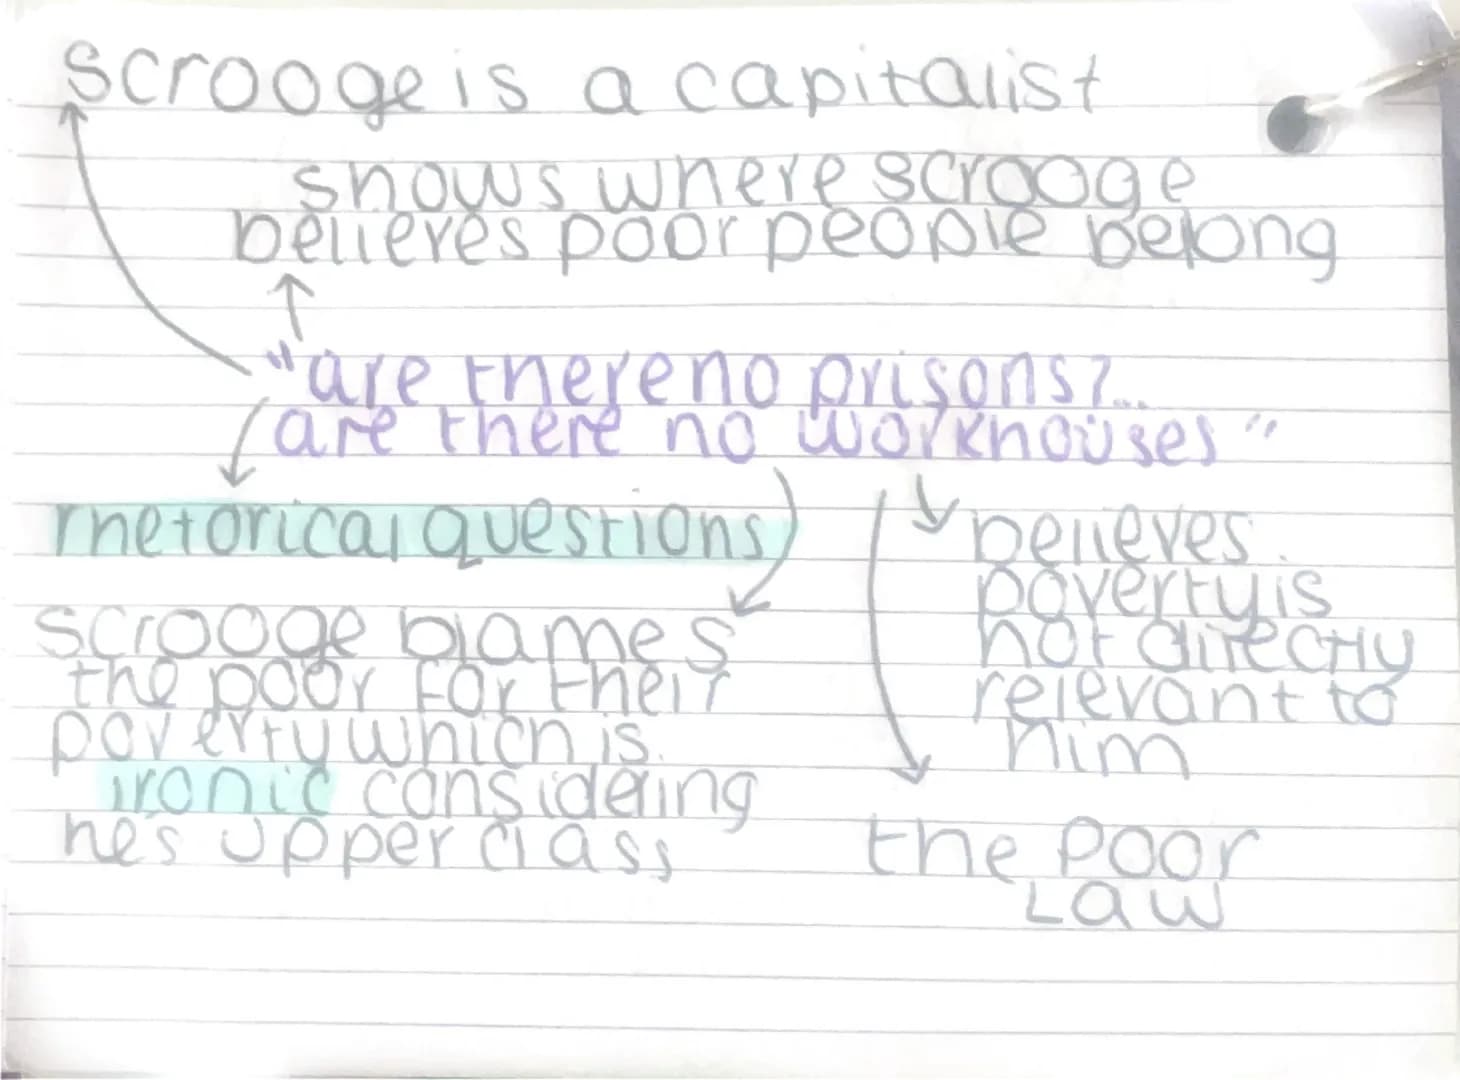 scrooge is a capitalist
shows where scrooge
believes poor people belong
"are there no prisons?...
are there no workhouses"
rhetorical questions
believes
poverty is
not directly
relevant to
him
scrooge blames
the poor for their
poverty which is
ironic considering
he's upper class
the Poor
Law